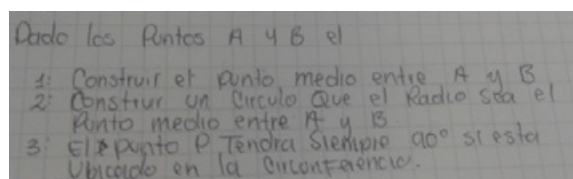 Dado los Puntos A y B el
1: Construir el punto medio entre A y B
2: Construir un Circulo Que el Radio sea el
Punto medio entre A y B
3: El punto P Tendra Siempre 90° si esta
Ubicado en la Circonferencia.